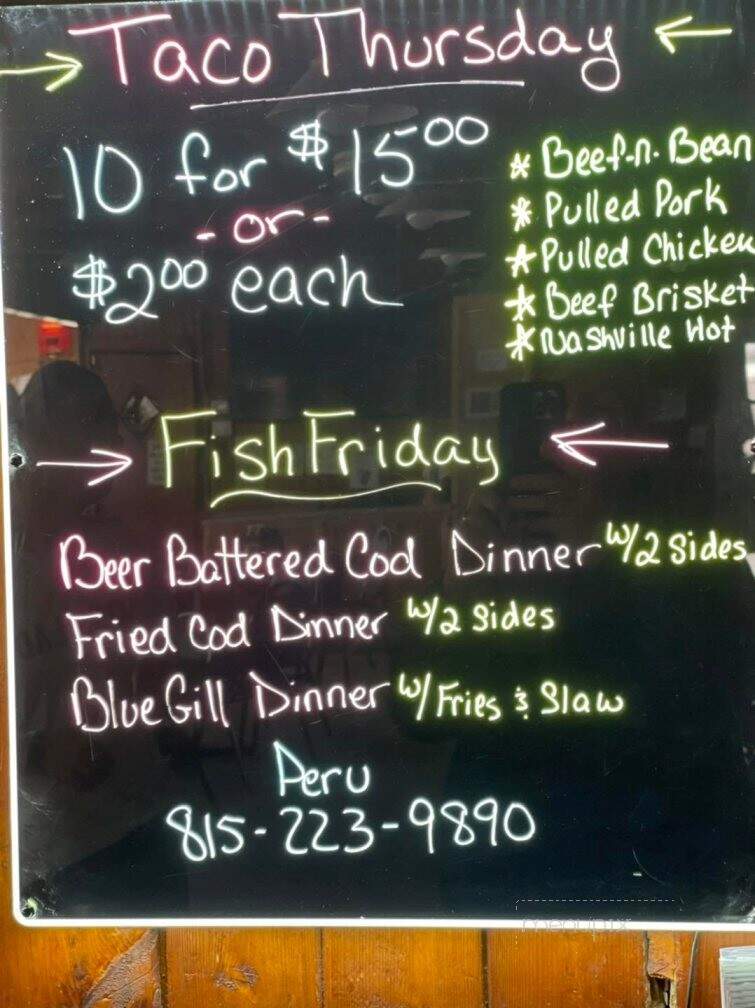 → Taco Thursday ←
10 for $15.00
- or -
$2.00 each
* Beef-n-Bean
* Pulled Pork
* Pulled Chicken
* Beef Brisket
* Nashville Hot
→ Fish Friday ←
Beer Battered Cod Dinner w/2 Sides
Fried Cod Dinner w/2 Sides
Blue Gill Dinner w/ Fries & Slaw
Peru
815-223-9890